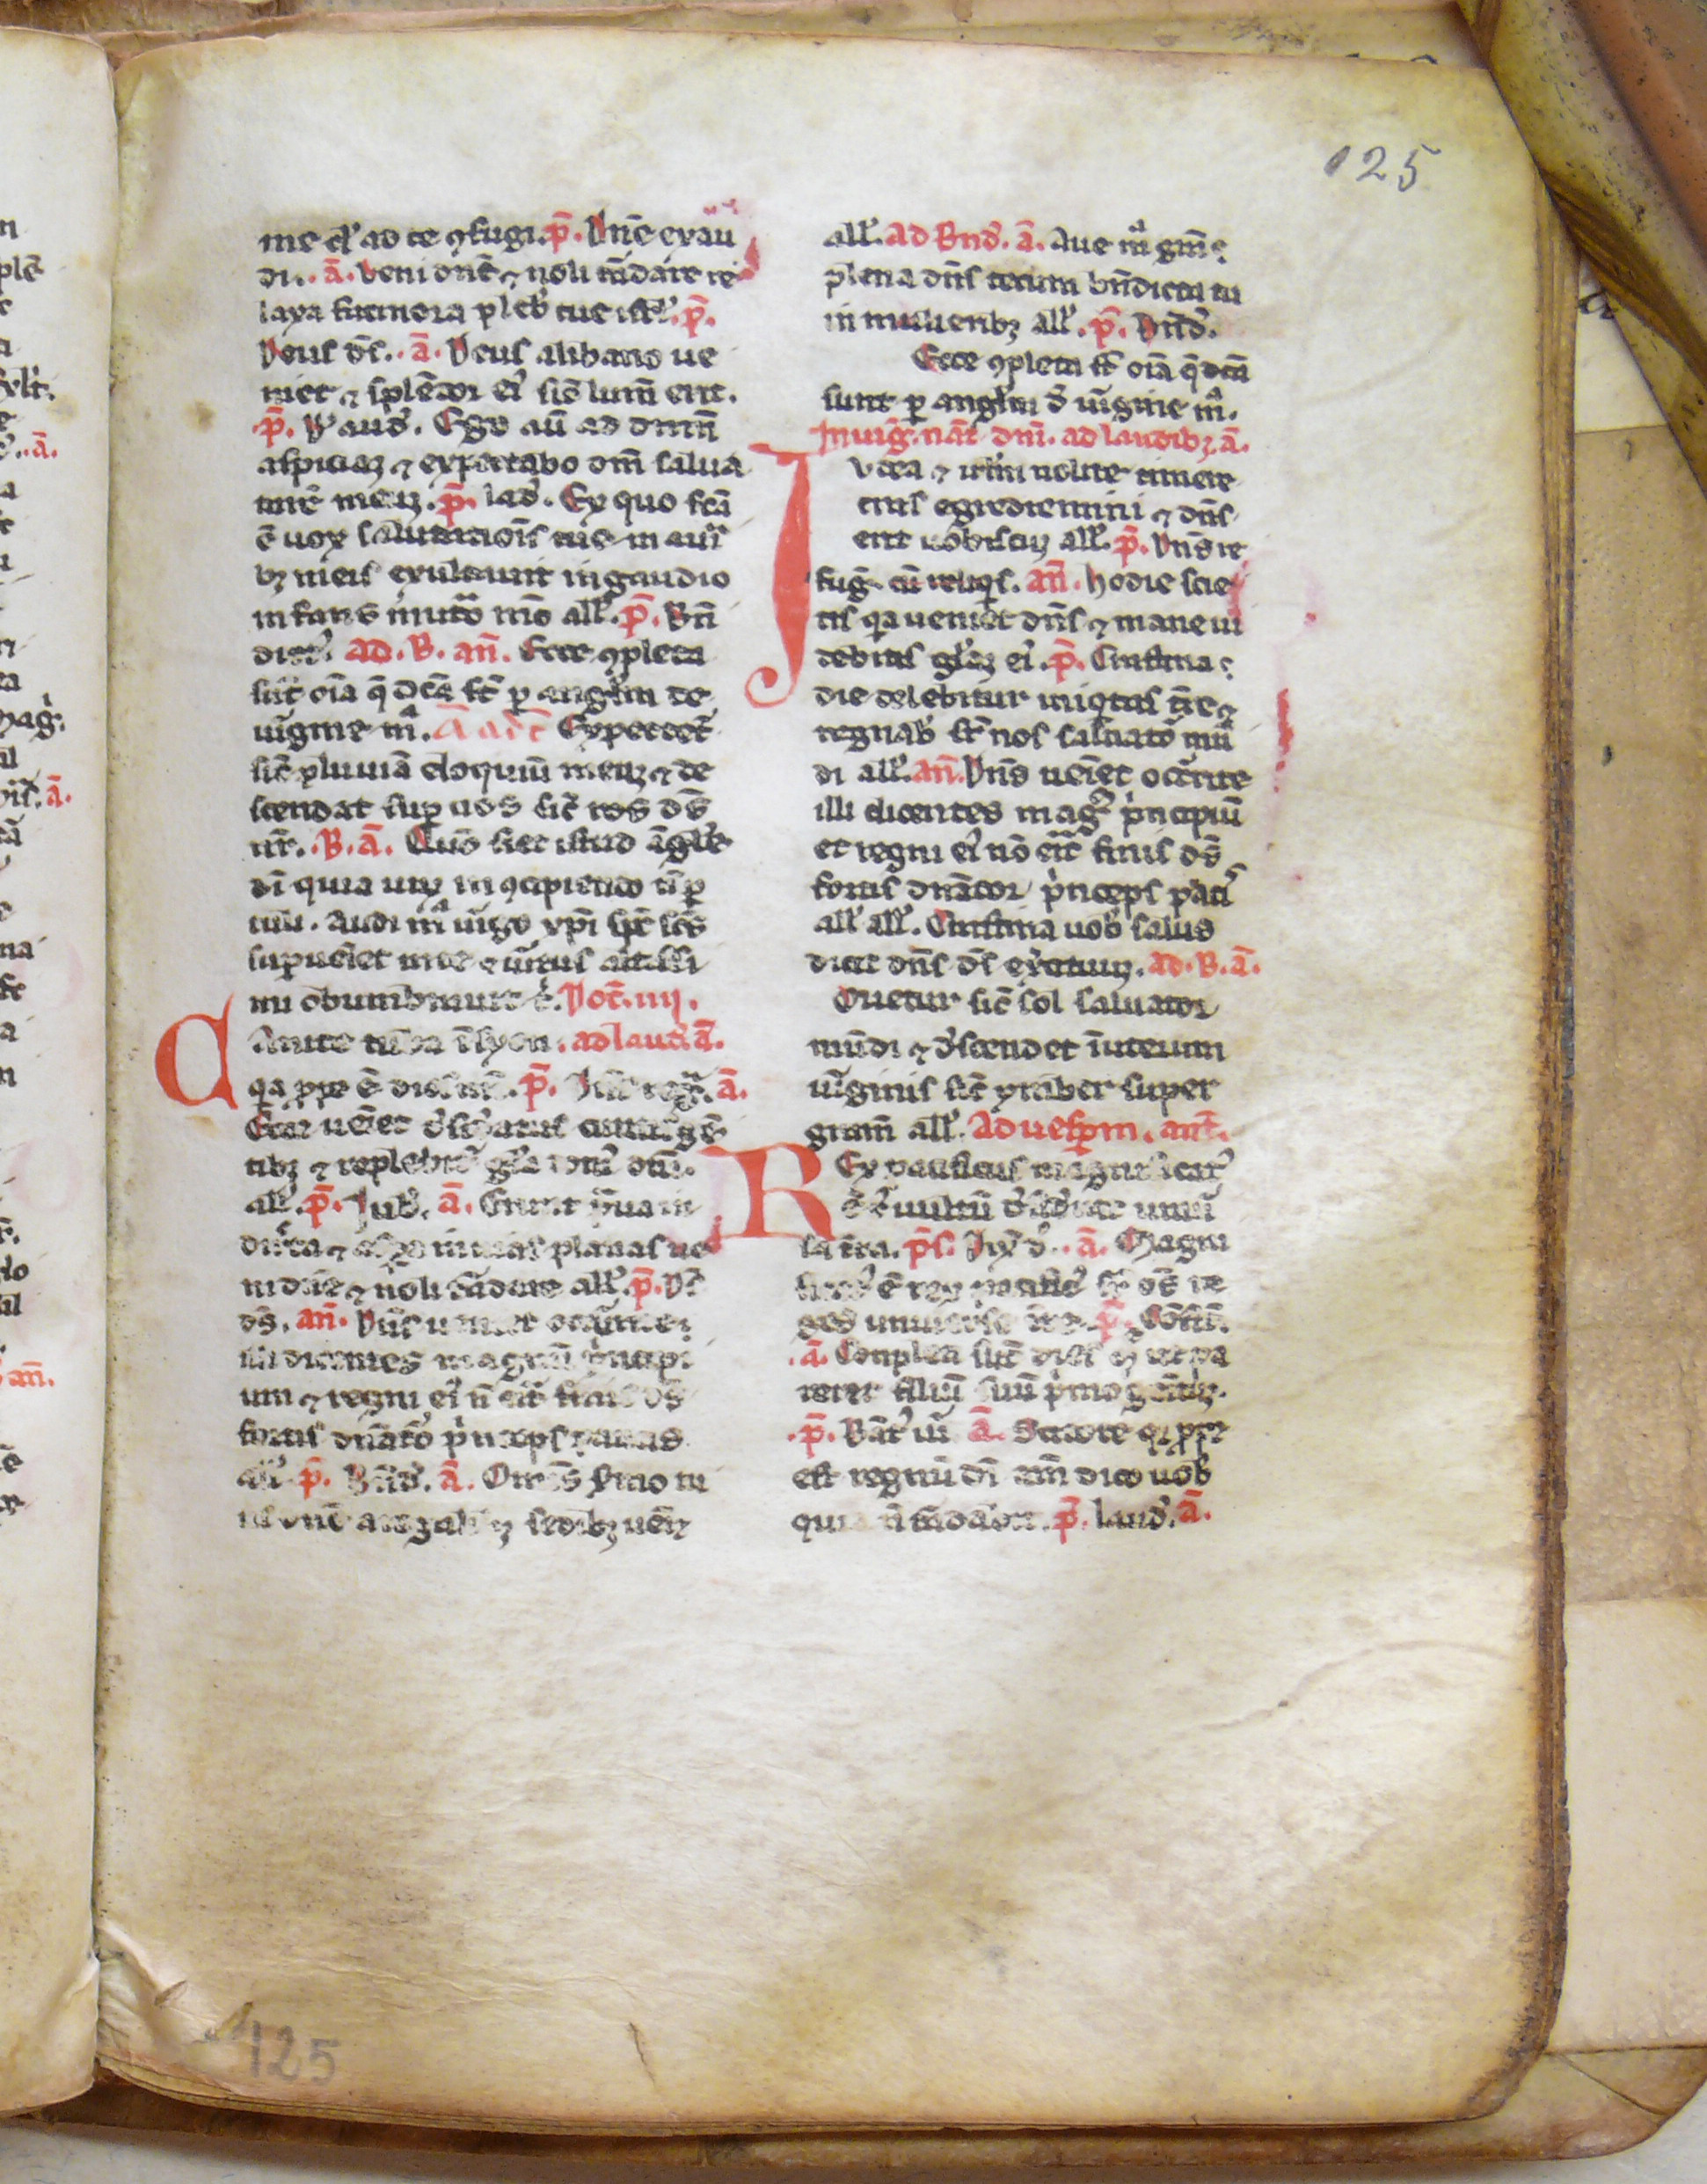 125
me d̄ ad te ꝯfugi. p̄. Dn̄e exau
di. ā. Veni dn̄e ⁊ noli t̄dare re
laxa facinora pleb tue isrł. p̄.
Deus d̄s. ā. Deus alibano ue
niet ⁊ splēdor ei sic̄ lum̄ erit.
p̄. D̄ aud. Ego aū ad dnm̄
aspiciaꝫ ⁊ expectabo dm̄ salua
torē meuꝫ. p̄. lad. Ex quo fcā
ē uox salutationis tue in auri
bꝫ meis exultauit in gaudio
infans in utō mō all. p̄. Bn̄
dict. ad. B. an̄. Ecce ꝯpleta
sūt oīa q̄ dcā st̄ p angłm de
uigine m̄. Ā ad t̄ Expectet
sic̄ pluuiā eloquiū meuꝫ ⁊ de
scendat sup uos sic̄ ros d̄s
nr̄. B. ā. Quō fiet istud āgłe
dī quia uiꝫ in ꝯcipiendo n̄ p
tuli. Audi m̄ uigo xp̄i sp̄c sc̄s
supueīet in te ⁊ uirtus altissi
mi obumbrauit t̄. Not̄. iiij.
Canite tuba ī syon. ad laud. ā.
qa ppe ē dies dn̄i. p̄. ā.
Ecce ueīet desideratus cunctis gē
tibꝫ ⁊ replebit gła dom̄ dn̄i.
all. p̄. Jub. ā. Erunt p̄ua in
dirēta ⁊ aspa in uias planas ue
ni dn̄e ⁊ noli t̄dare all. p̄. D̄s
d̄s. an̄. Dn̄s ueniet occurrite
illi dicentes magnū p̄ncipi
um ⁊ regni ei n̄ erit finis d̄s
fortis dn̄atō p̄nceps pacis
all. p̄. Bn̄d. ā. Omps sermo tu
us dn̄e a regalibꝫ sedibꝫ uen̄
all. ad Bnd. ā. Aue m̄ gm̄
plena dn̄s tecum bn̄dicta tu
in mulieribꝫ all. p̄. Bn̄d.
Ecce ꝯpleta st̄ oīa q̄ dcā
sunt p angłm d̄ uīgine m̄.
In uig. nat̄ dn̄i. ad laudibꝫ ā.
Judea ⁊ irłm nolite timere
cras egrediemini ⁊ dn̄s
erit uobiscuꝫ all. p̄. Dn̄s re
fug. cū reliqs. an̄. Hodie scie
tis qa ueniet dn̄s ⁊ mane ui
debitis głaꝫ ei. p̄. Crastina
die delebitur iniqtas tr̄e ⁊
regnab st̄ nos saluatō mū
di all. an̄. Dn̄s ueīet occ̄rite
illi dicentes mag p̄ncipiū
et regni ei nō erit finis d̄s
fortis dn̄ator p̄nceps pacis
all all. Crastina uob salus
dicit dn̄s d̄s ex̄cituuꝫ. ad. B. ā.
Orietur sic̄ sol saluator
mūdi ⁊ d̄scendet ī uterum
uīginis sic̄ ymber super
gram̄ all. Ad uespm. ant̄.
Rex pacificus magnificat
ē c̄ uultū d̄siderat uniū
sa t̄ra. p̄s. Dix d. ā. Magni
ficat ē rex pacific̄ st̄ oēs re
ges uniuerse tr̄e. p̄. Cōfit̄.
ā. Conpleti sūt dies ꝫ ut pa
reret filiū suū p̄mogēituꝫ.
p̄. Bat̄ uī ā. Scitote q ppe
est regnū dī am̄ dico uob
quia n̄ t̄dabit. p̄. laud. ā.
125